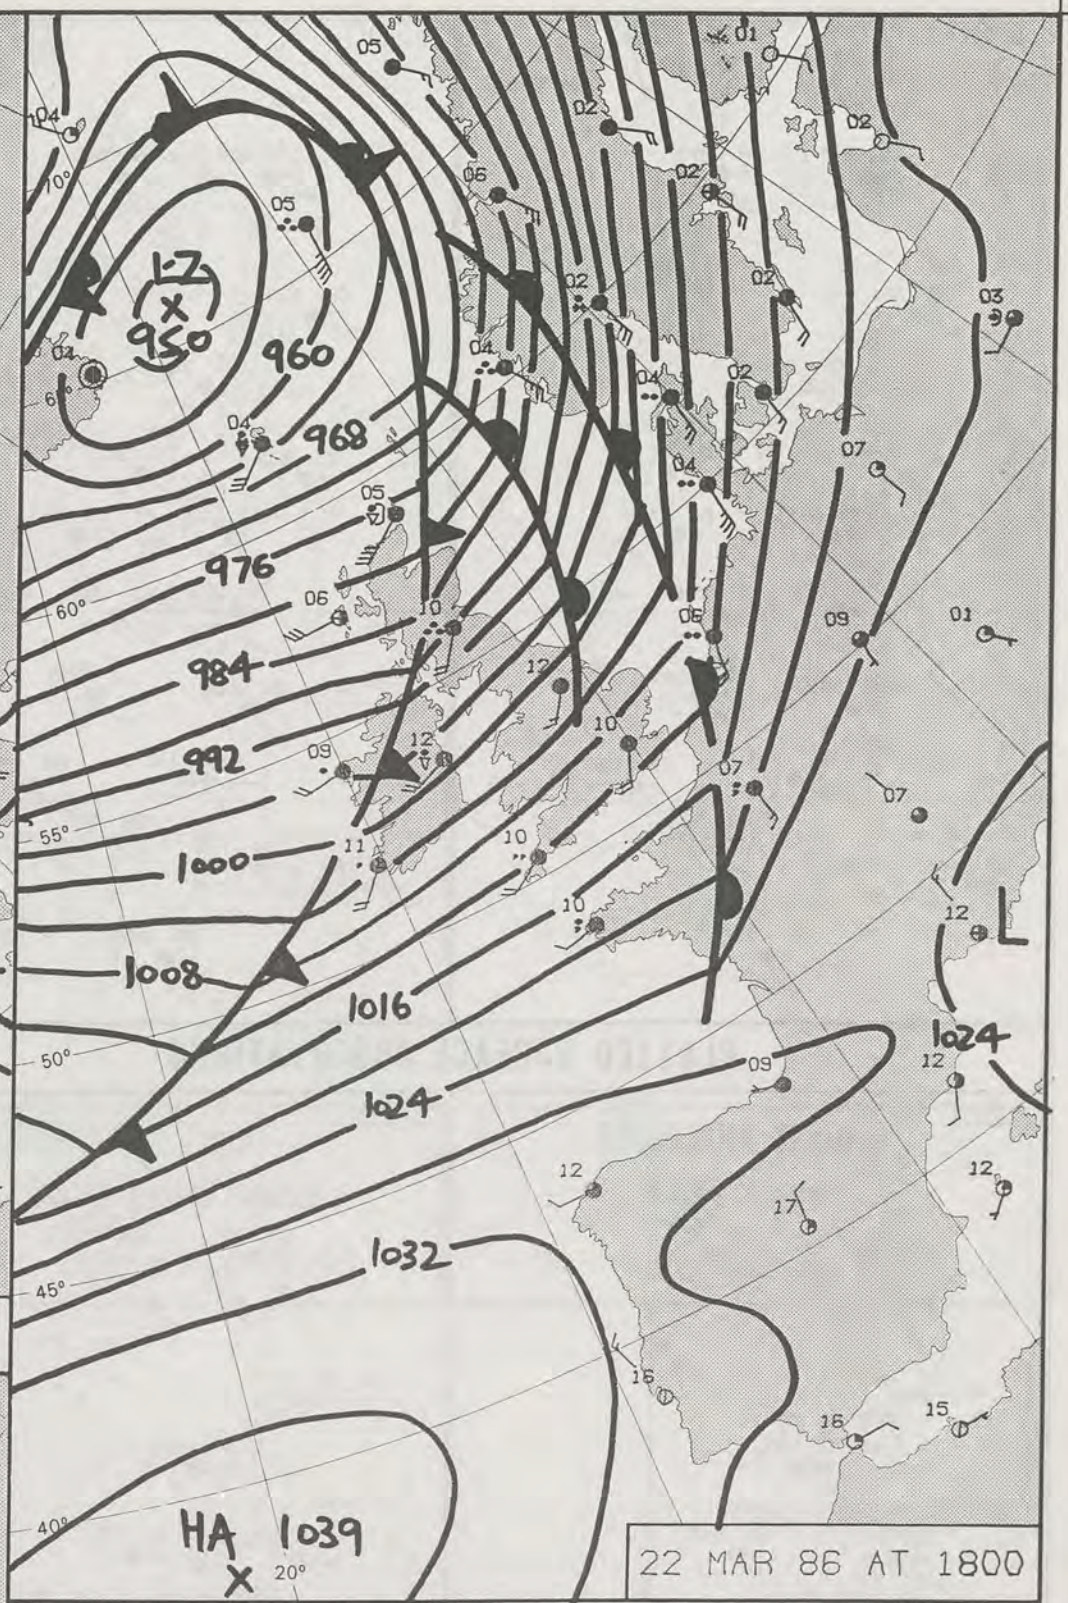 01
05
04
02
02
70°
06
02
05
02
1-Z
02
03
950
04
960
04
02
04
968
07
04
05
976
60°
06
10
06
09
01
984
12
10
12
992
09
07
07
55°
1000
11
10
10
12
L
1008
1016
1024
50°
09
12
1024
12
12
17
1032
45°
16
16
15
HA 1039
40°
20°
22 MAR 86 AT 1800